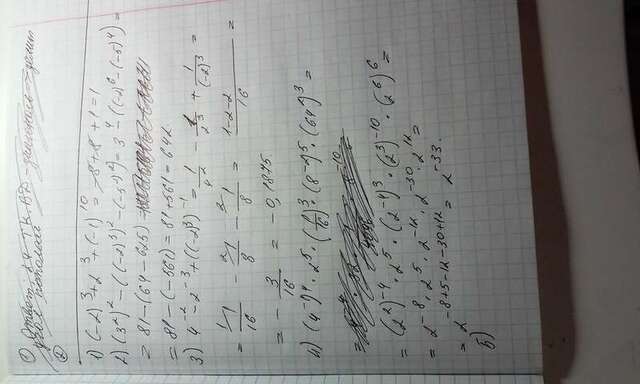 ① Ответ: т.к. BD -
угол пополам
②
1) (-2)³+2³+(-1)¹⁰= -8+8+1=1
2) (3²)² - ((-2)³)² - (-5²)²) = 3⁴ - ((-2)⁶ - (-5)⁴) =
= 81 - (64 - 625) =
= 81 - (-561) = 81 + 561 = 642
3) 4⁻² - 2⁻³ + ((-2)³)⁻¹ = 1/4² - 1/2³ + 1/(-2)³ =
= 1/16 - 1/8 - 1/8 = (1-2-2)/16 =
= - 3/16 = -0,1875.
4) (4⁻¹)⁴ · 2⁵ · (1/16)³ · (8⁻²)⁵ · (64²)³ =
= (2²)⁻⁴ · 2⁵ · (2⁻⁴)³ · (2³)⁻¹⁰ · (2⁶)⁶ =
= 2⁻⁸ · 2⁵ · 2⁻¹² · 2⁻³⁰ · 2¹² =
= 2⁻⁸⁺⁵⁻¹²⁻³⁰⁺¹² = 2⁻³³.
5)